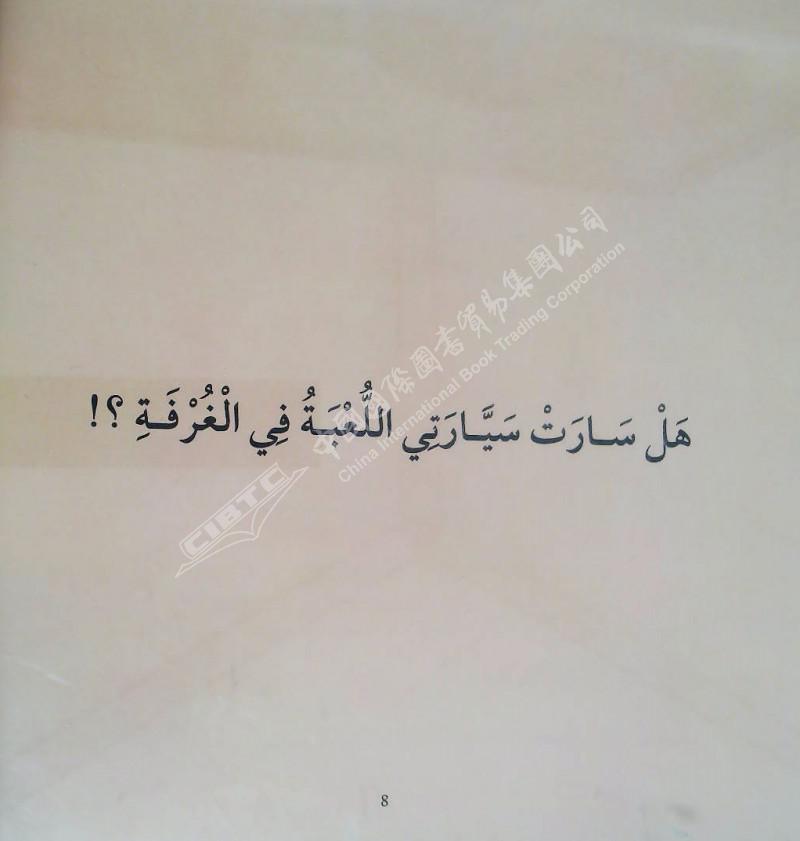 中國國際圖書貿易集團公司
China International Book Trading Corporation
هَلْ سَـارَتْ سَيَّـارَتِي اللُّعْبَـةُ فِي الْغُرْفَـةِ ؟!
CIBTC
8